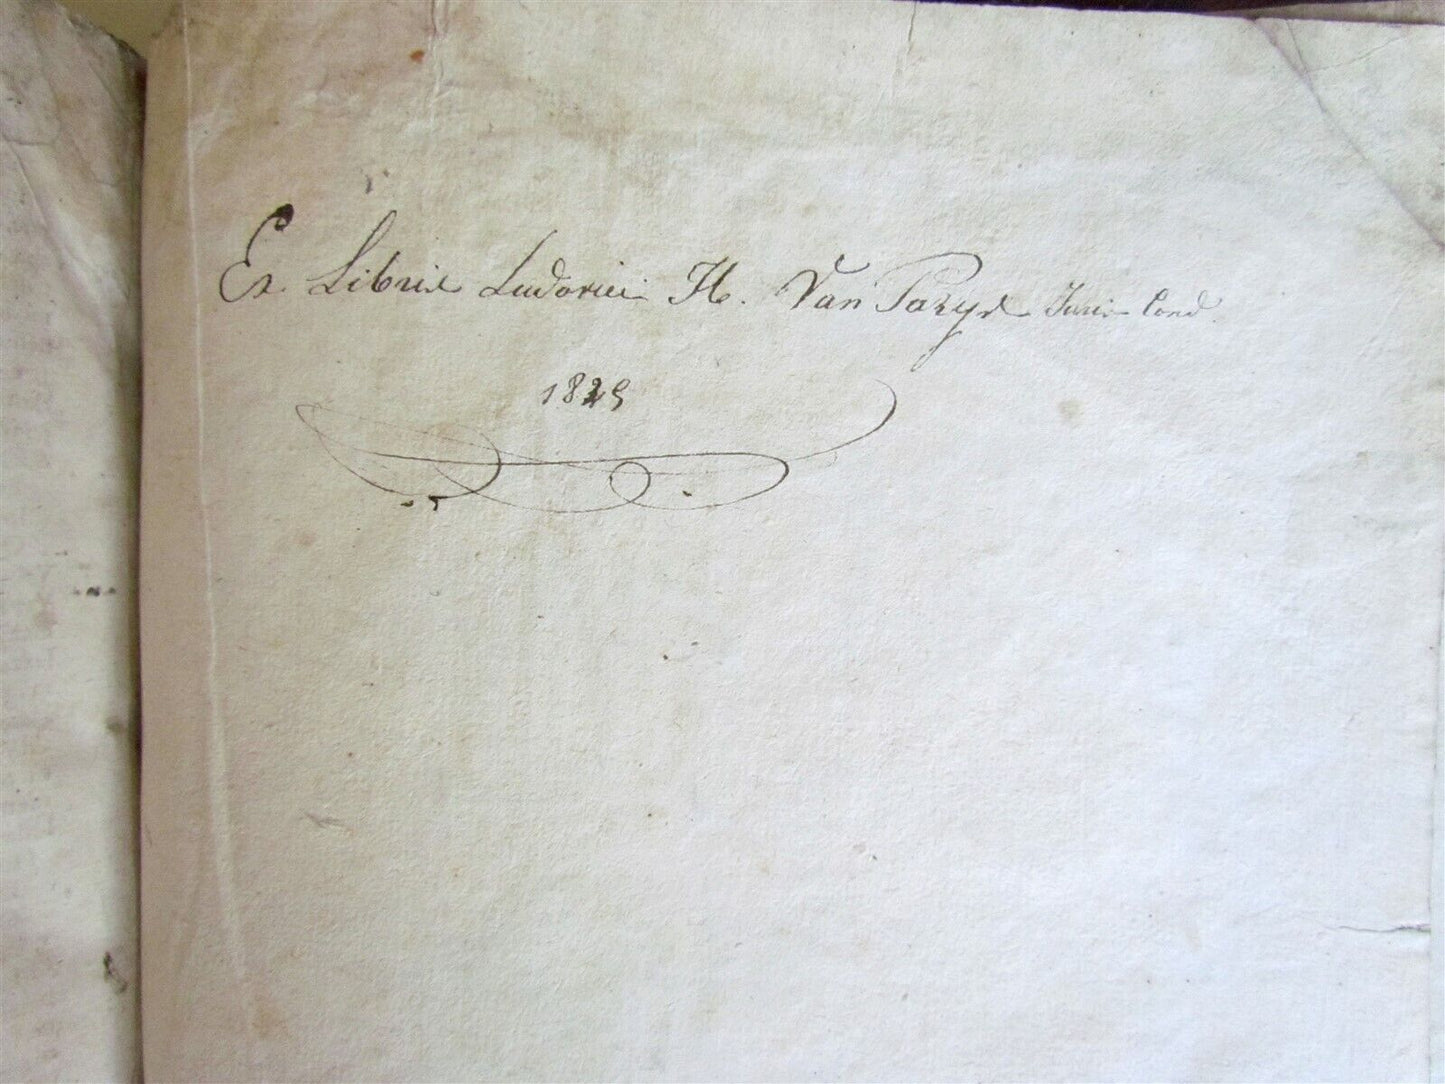 Ex Libris Ludovici H. Van Parys Juris Cand.
1825